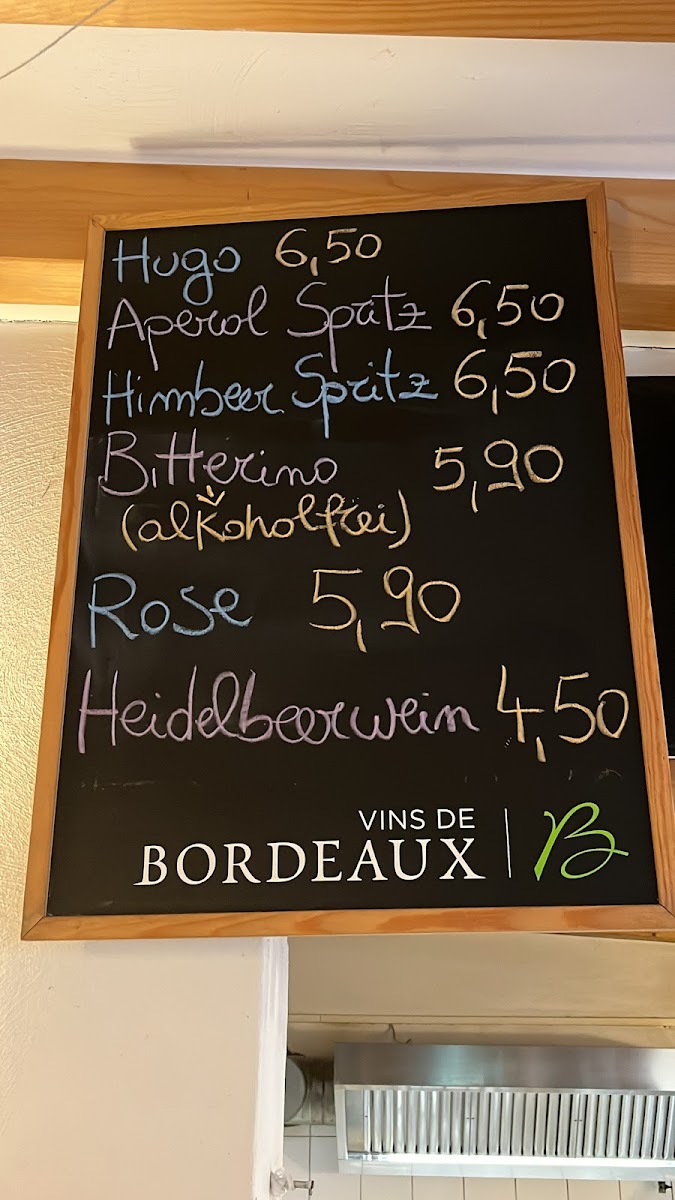 Hugo 6,50
Aperol Spritz 6,50
Himbeer Spritz 6,50
Bitterino 5,90
(alkoholfrei)
Rose 5,90
Heidelbeerwein 4,50
VINS DE
BORDEAUX B